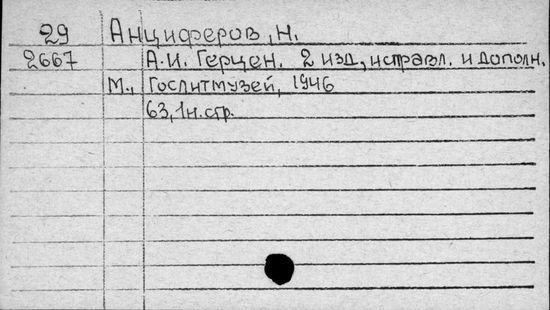 29 Анциферов, Н.
2667 А.И. Герцен. 2 изд., исправл. и дополн.
М., Гослитмузей, 1946
63, 1н. стр.